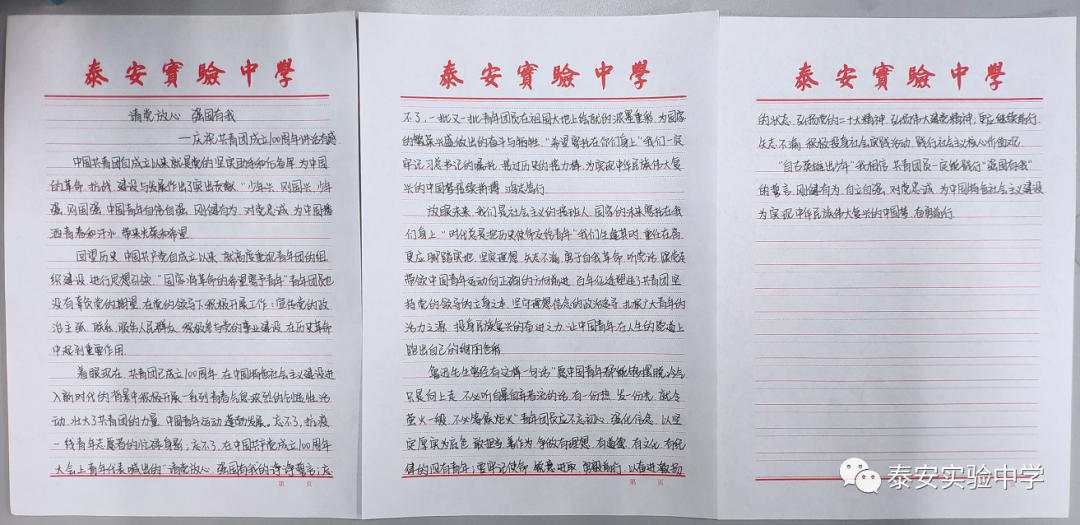 泰安實驗中學
请党放心 强国有我
—庆祝共青团成立100周年讲话有感
中国共青团自成立以来就是党的坚实助手和后备军,为中国
的革命、抗战、建设与发展作出了突出贡献。"少年兴,则国兴,少年
强,则国强"中国青年自信自强,刚健有为,对党忠诚,为中国播
洒青春和汗水,带来光荣和希望。
回望历史,中国共产党自成立以来,就高度重视青年团的组
织建设,进行思想引领,"国家将革命的希望寄予青年"青年团员也
没有辜负党的期望,在党的领导下积极开展工作:宣传党的政
治主张,联系、服务人民群众,积极参与党的事业建设,在历史革命
中起到重要作用。
着眼现在,共青团已成立100周年,在中国特色社会主义建设进
入新时代的背景中积极开展一系列有青春气息浓烈的创造性活
动,壮大了共青团的力量,中国青年运动蓬勃发展。忘不了,抗疫
一线青年志愿者的倔强身影;忘不了,在中国共产党成立100周年
大会上青年代表喊出的"请党放心,强国有我"的铮铮誓言;忘
第 页
泰安實驗中學
不了,一批又一批青年团员在祖国大地上绘就的浓墨重彩,为国家
的繁荣兴盛做出的奋斗与牺牲。"希望寄托在你们身上"我们一定
牢记习总书记的嘱托,接过历史的接力棒,为实现中华民族伟大复
兴的中国梦接续拼搏,埋头前行。
放眼未来,我们是社会主义的接班人,国家的未来寄托在我
们身上。"时代总是把历史使命交给青年"我们生逢其时,重任在肩,
更应脚踏实地,坚定理想,矢志不渝,勇于自我革命,听党话,跟党走
带领中国青年运动向正确的方向前进。百年征途塑造了共青团坚
持党的领导的立身之本,坚守理想信念的政治之魂,扎根广大青年的
活力之源,投身民族复兴的奋进之力,让中国青年在人生的跑道上
跑出自己的绚丽色彩。
鲁迅先生曾经有这样一句话"愿中国青年都能摆脱冷气,
只是向上走,不必听自暴自弃者流的话,有一份热,发一份光,就令
萤火一般,不必等候炬火"青年团员应不忘初心,强化信念,以坚
实厚实为底色,敢担当善作为,争做有理想、有道德、有文化、有纪
律的四有青年;牢记使命,锐意进取,勇毅前行,以奋进激扬
第 页
泰安實驗中學
的状态,弘扬党的二十大精神,弘扬伟大建党精神,更应继续前行,
矢志不渝,积极投身社会实践活动,践行社会主义核心价值观。
"自古英雄出少年"我相信,共青团员一定能践行"强国有我"
的誓言,刚健有为,自立自强,对党忠诚,为中国特色社会主义建设
为实现中华民族伟大复兴的中国梦,奋勇前行。
泰安实验中学